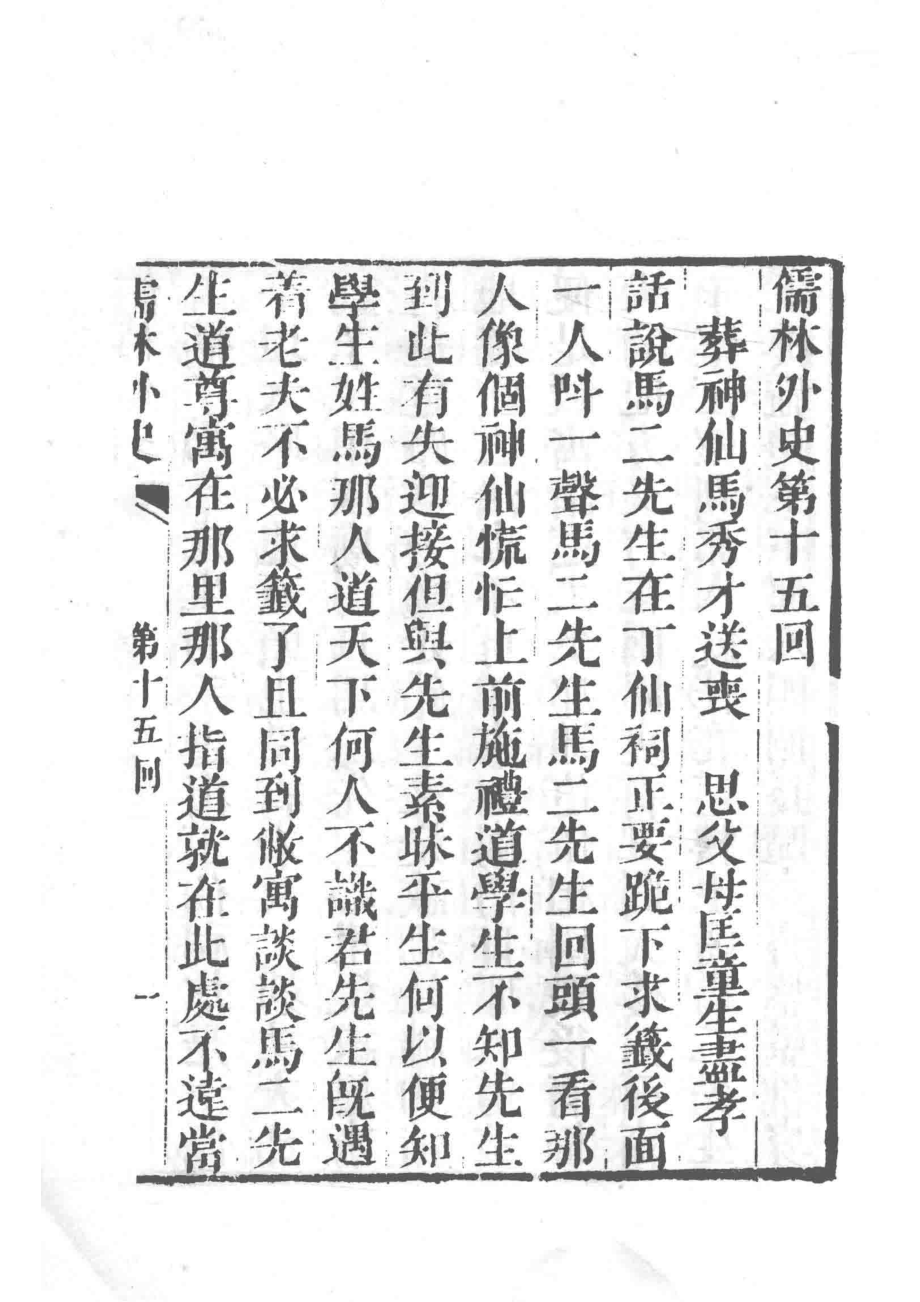 儒林外史第十五回
葬神仙馬秀才送喪　思父母匡童生盡孝
話說馬二先生在丁仙祠正要跪下求籤後面
一人呌一聲馬二先生馬二先生回頭一看那
人像個神仙慌忙上前施禮道學生不知先生
到此有失迎接但與先生素昧平生何以便知
學生姓馬那人道天下何人不識君先生旣遇
着老夫不必求籤了且同到敝寓談談馬二先
生道尊寓在那里那人指道就在此處不遠當
儒林外史　第十五回　一